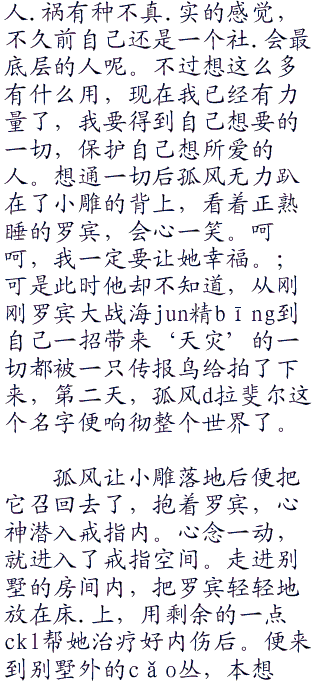 人.祸有种不真.实的感觉，
不久前自己还是一个社.会最
底层的人呢。不过想这么多
有什么用，现在我已经有力
量了，我要得到自己想要的
一切，保护自己想所爱的
人。想通一切后孤风无力趴
在了小雕的背上，看着正熟
睡的罗宾，会心一笑。呵
呵，我一定要让她幸福。；
可是此时他却不知道，从刚
刚罗宾大战海jun精bīng到
自己一招带来‘天灾’的一
切都被一只传报鸟给拍了下
来，第二天，孤风d拉斐尔这
个名字便响彻整个世界了。
孤风让小雕落地后便把
它召回去了，抱着罗宾，心
神潜入戒指内。心念一动，
就进入了戒指空间。走进别
墅的房间内，把罗宾轻轻地
放在床.上，用剩余的一点
ckl帮她治疗好内伤后。便来
到别墅外的cǎo丛，本想